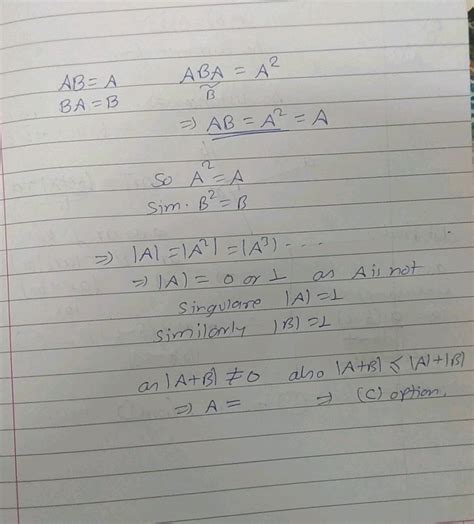 AB = A ABA = A²
BA = B B
⇒ AB = A² = A
So A² = A
Sim. B² = B
⇒ |A| = |A²| = |A³| ....
⇒ |A| = 0 or 1 as A is not
singulare |A| = 1
similarly |B| = 1
as |A+B| ≠ 0 also |A+B| ≤ |A|+|B|
⇒ A = ⇒ (C) option.